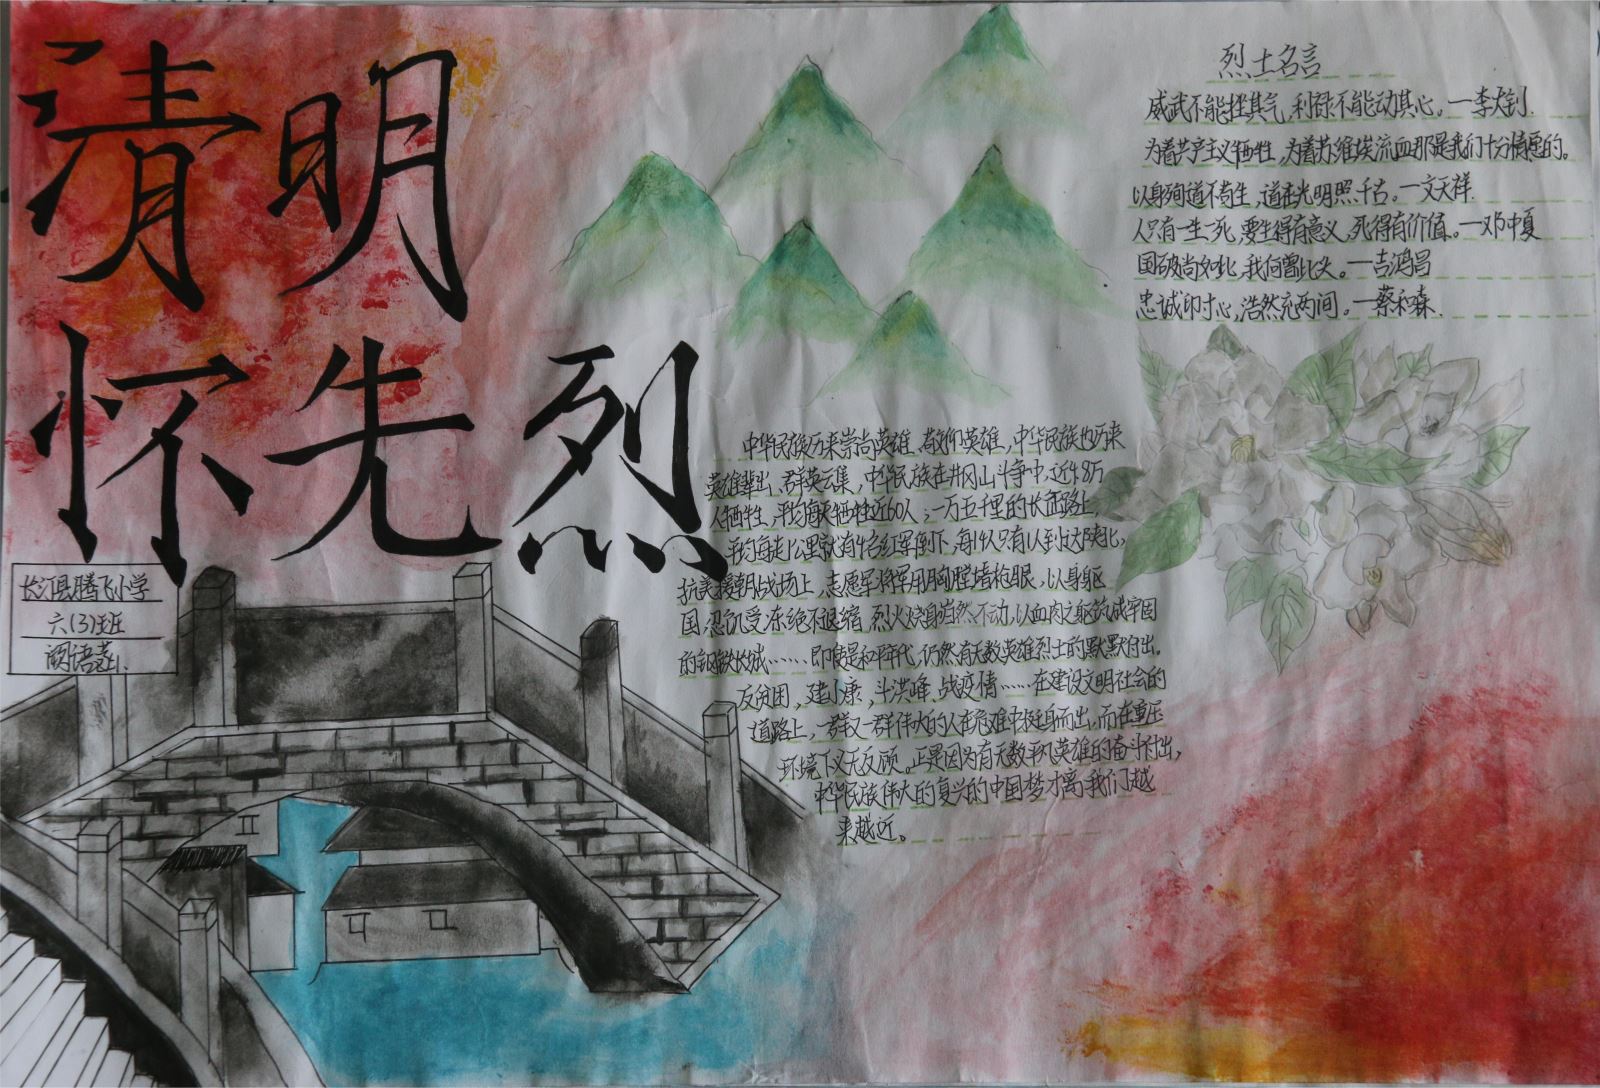 清明
怀先烈
长江县腾飞小学
六(3)班
烈士名言
威武不能挫其气,利禄不能动其心。一李大钊.
为着共产主义牺牲,为着苏维埃流血那是我们十分情愿的。
以身殉道不苟生,道在光明照千古。一文天祥.
人只有一生一死,要生得有意义,死得有价值。一邓中夏
国破尚如此,我何惜此头。一吉鸿昌
忠诚印寸心,浩然充两间。一蔡和森.
中华民族历来崇尚英雄、英雄,中华民族也历来
英雄辈出、群英云集,中华民族在井冈山斗争中,近4.8万
人牺牲,平均每天牺牲近60人;一万五千里的长征路上,
平均每走1公里就有4名红军倒下,每4人只有1人到达陕北,
抗美援朝战场上,志愿军将军用胸膛堵枪眼、以身躯
国,忍饥受冻绝不退缩,烈火烧身岿然不动,以血肉之躯筑成牢固
的钢铁长城……即使是和平年代,仍然有无数英雄烈士的默默付出。
反贫困,建小康,斗洪峰、战疫情……在建设文明社会的
道路上,一群又一群伟大的人在危难中挺身而出,而在重压
环境下义无反顾。正是因为有无数平凡英雄的奋斗付出,
中华民族伟大的复兴的中国梦才离我们越
来越近。